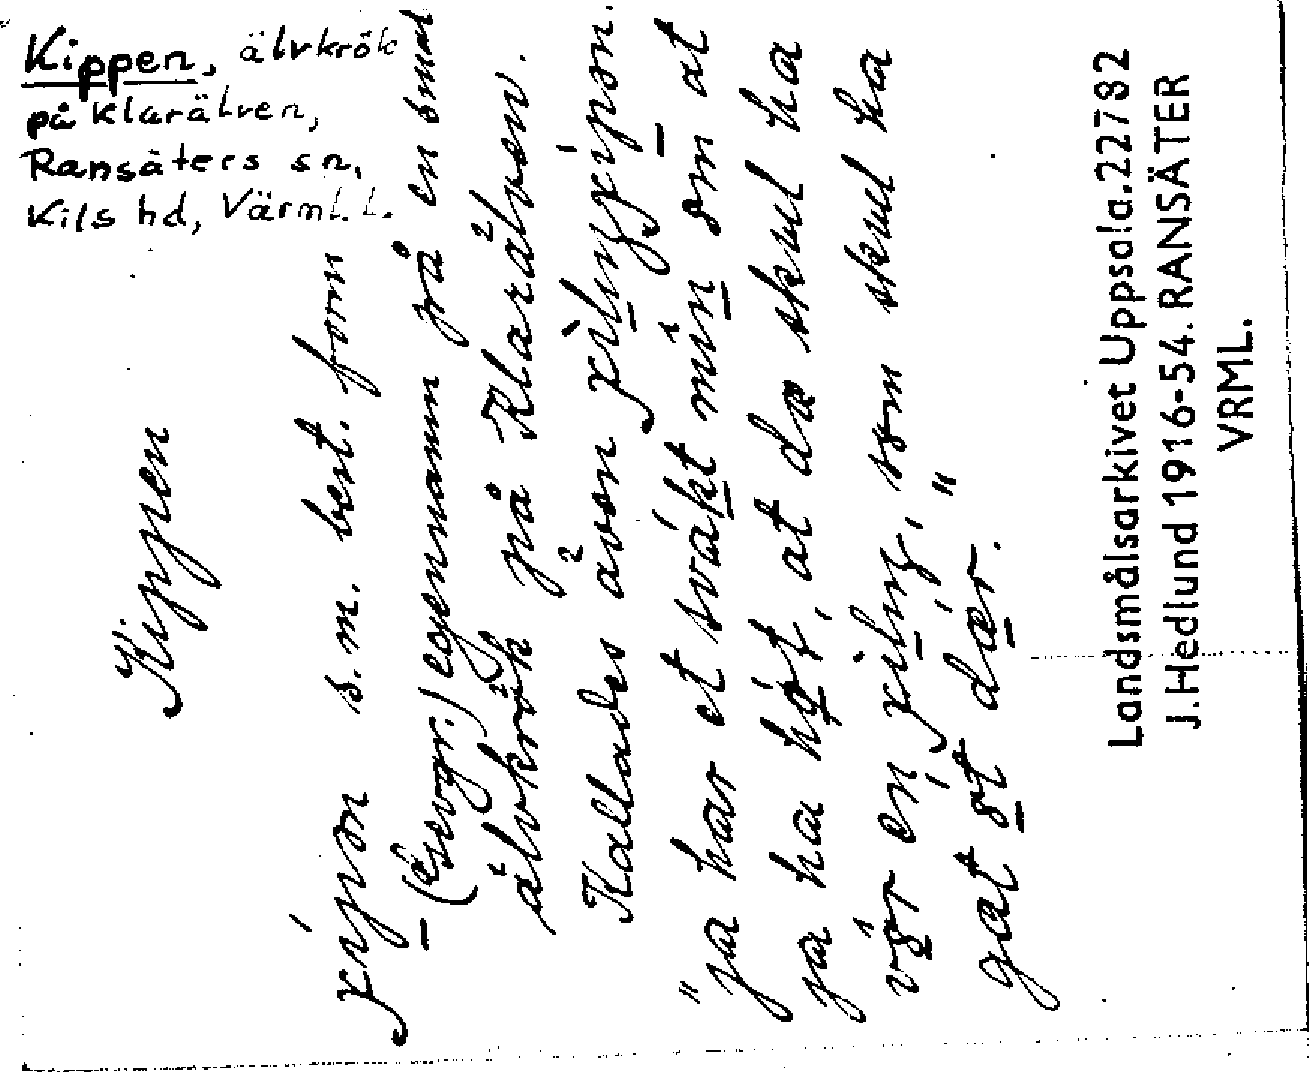 Kippen, älvkrök
på Klarälven,
Ransäters sn,
Kils hd, Värml. l.
Kippen
s.m. best. form
(geogr.) egennamn på en smal
älvkrök på Klarälven.
Kallades även
"ja har et svákt min om at
ja ha hǿt, at dæ skul ha
vǿr en som skul ha
gat ǿt dǽr."
Landsmålsarkivet Uppsala.22782
J.Hedlund 1916-54. RANSÄTER
VRML.